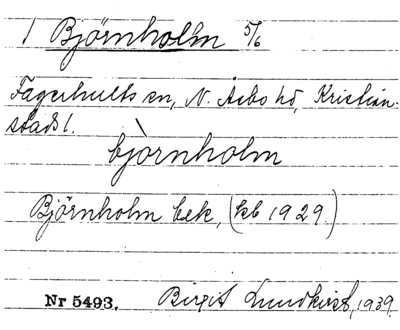 1 Björnholm 5/6
Fagerhults sn, N. Åsbo hd, Kristian-
stads l.
bjò̀rnholm
Björnholm bek, (kb 1929.)
Nr 5493. Birgit Lundkvist, 1939.